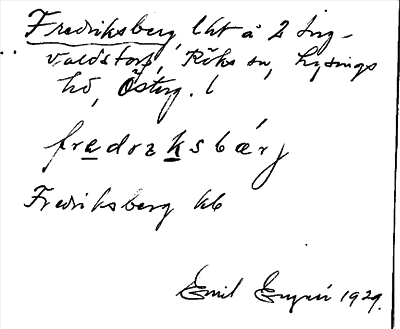 Fredriksberg, lht å 2 Ing-
valdstorp, Röks sn, Lysings
hd, Österg. l
fredrəksbærj
Fredriksberg kb
Emil 1929.